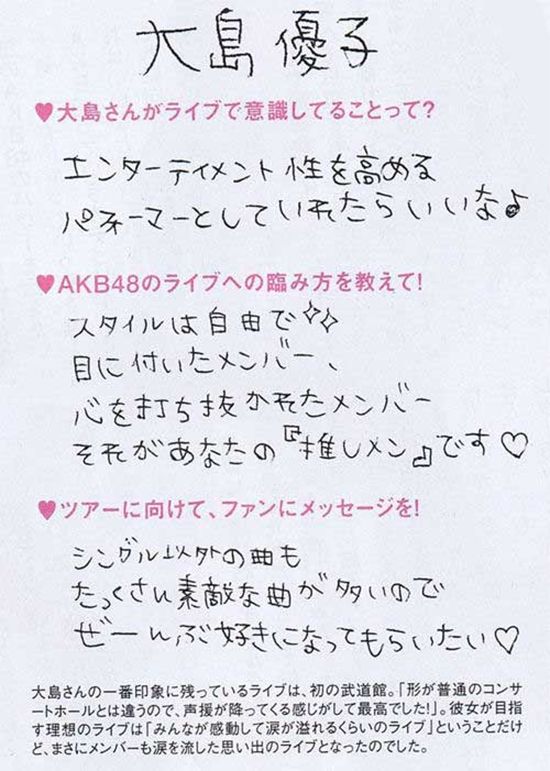 大島優子
♥大島さんがライブで意識してることって?
エンターテイメント性を高める
パフォーマーとしていれたらいいな♪
♥AKB48のライブへの臨み方を教えて!
スタイルは自由で✧✧
目に付いたメンバー、
心を打ち抜かれたメンバー
それがあなたの『推しメン』です♡
♥ツアーに向けて、ファンにメッセージを!
シングル以外の曲も
たっくさん素敵な曲が多いので
ぜーんぶ好きになってもらいたい♡
大島さんの一番印象に残っているライブは、初の武道館。「形が普通のコンサ
ートホールとは違うので、声援が降ってくる感じがして最高でした!」。彼女が目指
す理想のライブは「みんなが感動して涙が溢れるくらいのライブ」ということだけ
ど、まさにメンバーも涙を流した思い出のライブとなったのでした。